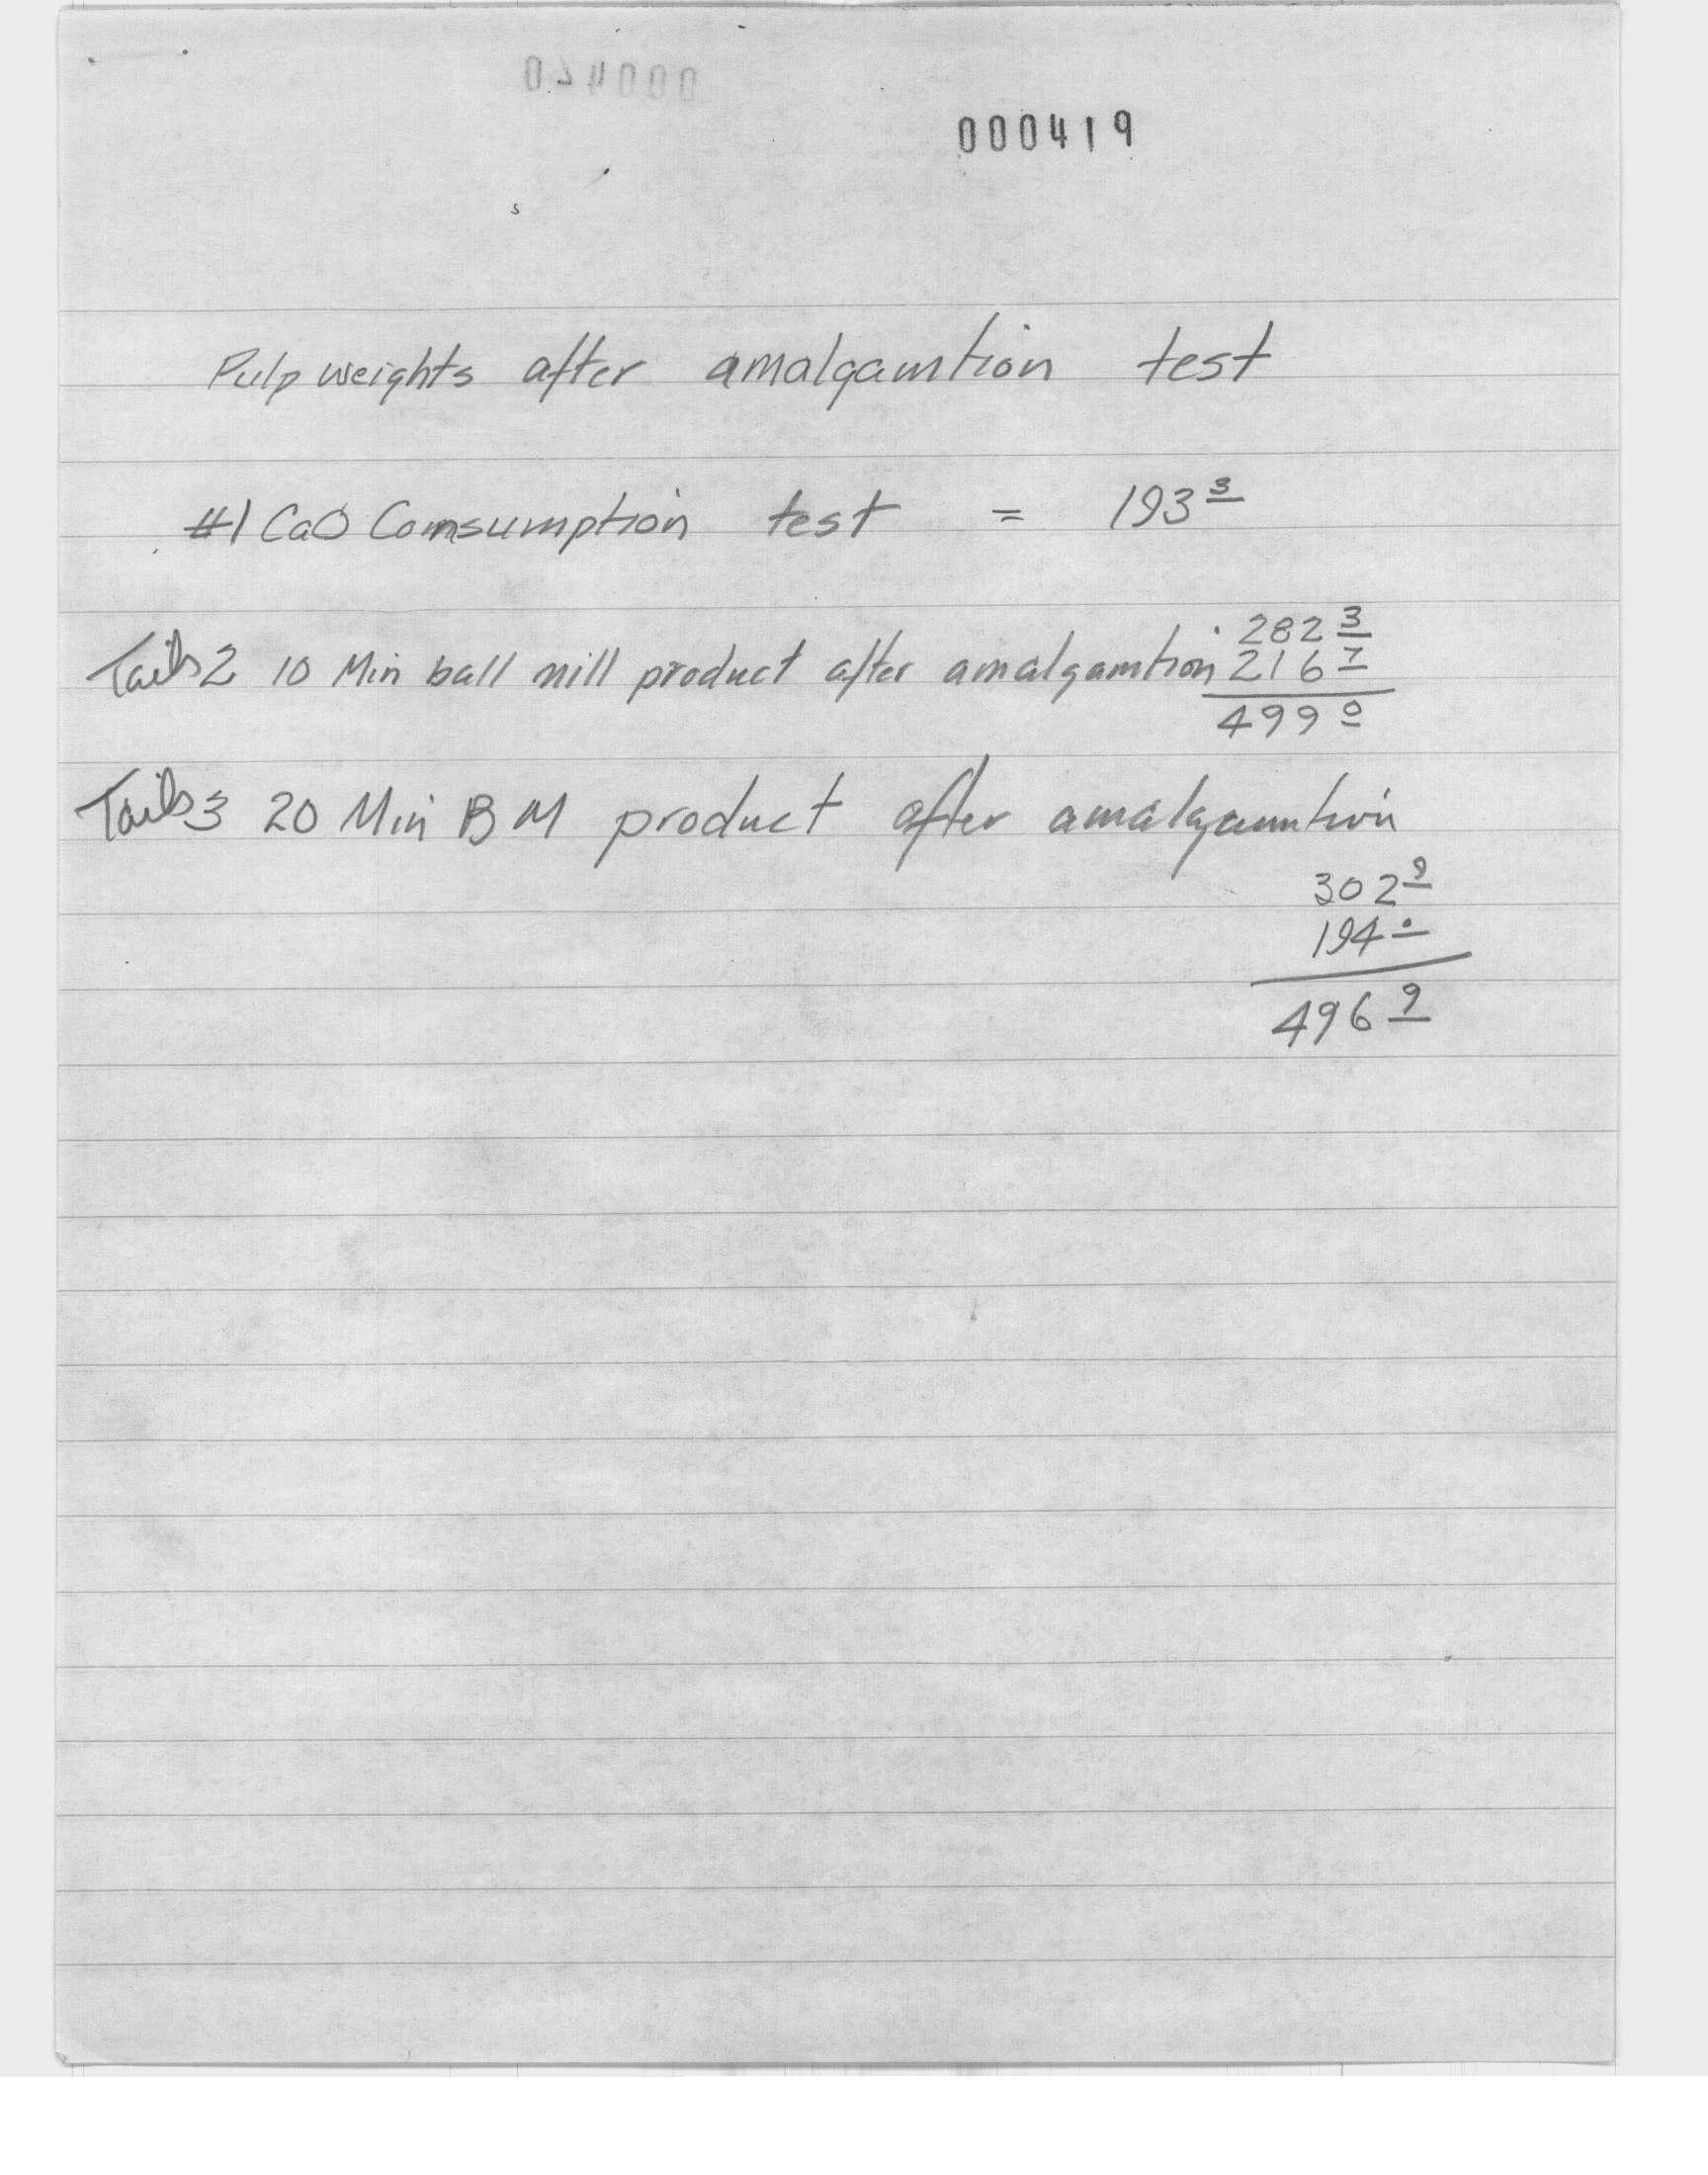 000419
Pulp weights after amalgamtion test
#1 CaO Comsumption test = 193 3
282 3
Tails 2 10 Min ball mill product after amalgamtion 216 7
499 0
Tails 3 20 Min BM product after amalgamtion
302 9
194 0
496 9